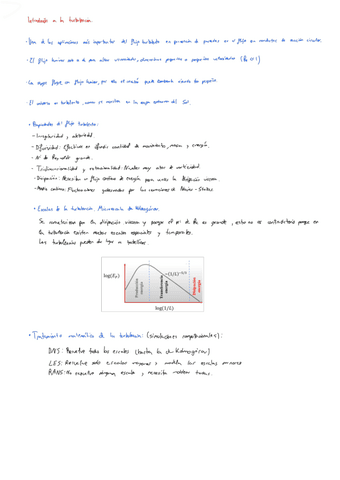 Introducción a la turbulencia.
- Una de las aplicaciones más importantes del flujo turbulento es provocación de pérdidas en el flujo en conductos de sección circular.
- El flujo laminar solo se da a altas viscosidades, dimensiones pequeñas o pequeñas velocidades (Re ≪ 1)
- La sangre fluye en flujo laminar, por ello el corazón puede bombearla siendo tan pequeño.
- El universo es turbulento, como se muestra en las mayores del Sol.
• Propiedades del flujo turbulento:
- Irregularidad y aleatoriedad
- Difusividad: Efectivos en difundir cantidad de movimiento, masa y energía.
- Nº de Reynolds grande.
- Tridimensionalidad y rotacionalidad: Niveles muy altos de vorticidad.
- Disipación: Necesitan un flujo continuo de energía para vencer la disipación viscosa.
- Medio continuo: Fluctuaciones gobernadas por las ecuaciones de Navier-Stokes.
• Escalas de la turbulencia. Microescala de Kolmogórov.
Se caracterizan por la disipación viscosa y porque el nº de Re es grande, esto no es contradictorio porque en
la turbulencia existen muchas escalas espaciales y temporales.
Los torbellinos pueden dar lugar a torbellinos.
log(E_T)
Producción energía
Transferencia energía
Disipación energía
~(1/L)^-5/3
log(1/L)
• Tratamiento matemático de la turbulencia: (simulaciones computacionales):
DNS: Resuelve todas las escalas (hasta la de Kolmogórov)
LES: Resuelve solo escalas mayores y modela las escalas menores
RANS: No resuelve ninguna escala y necesita modelar todas.